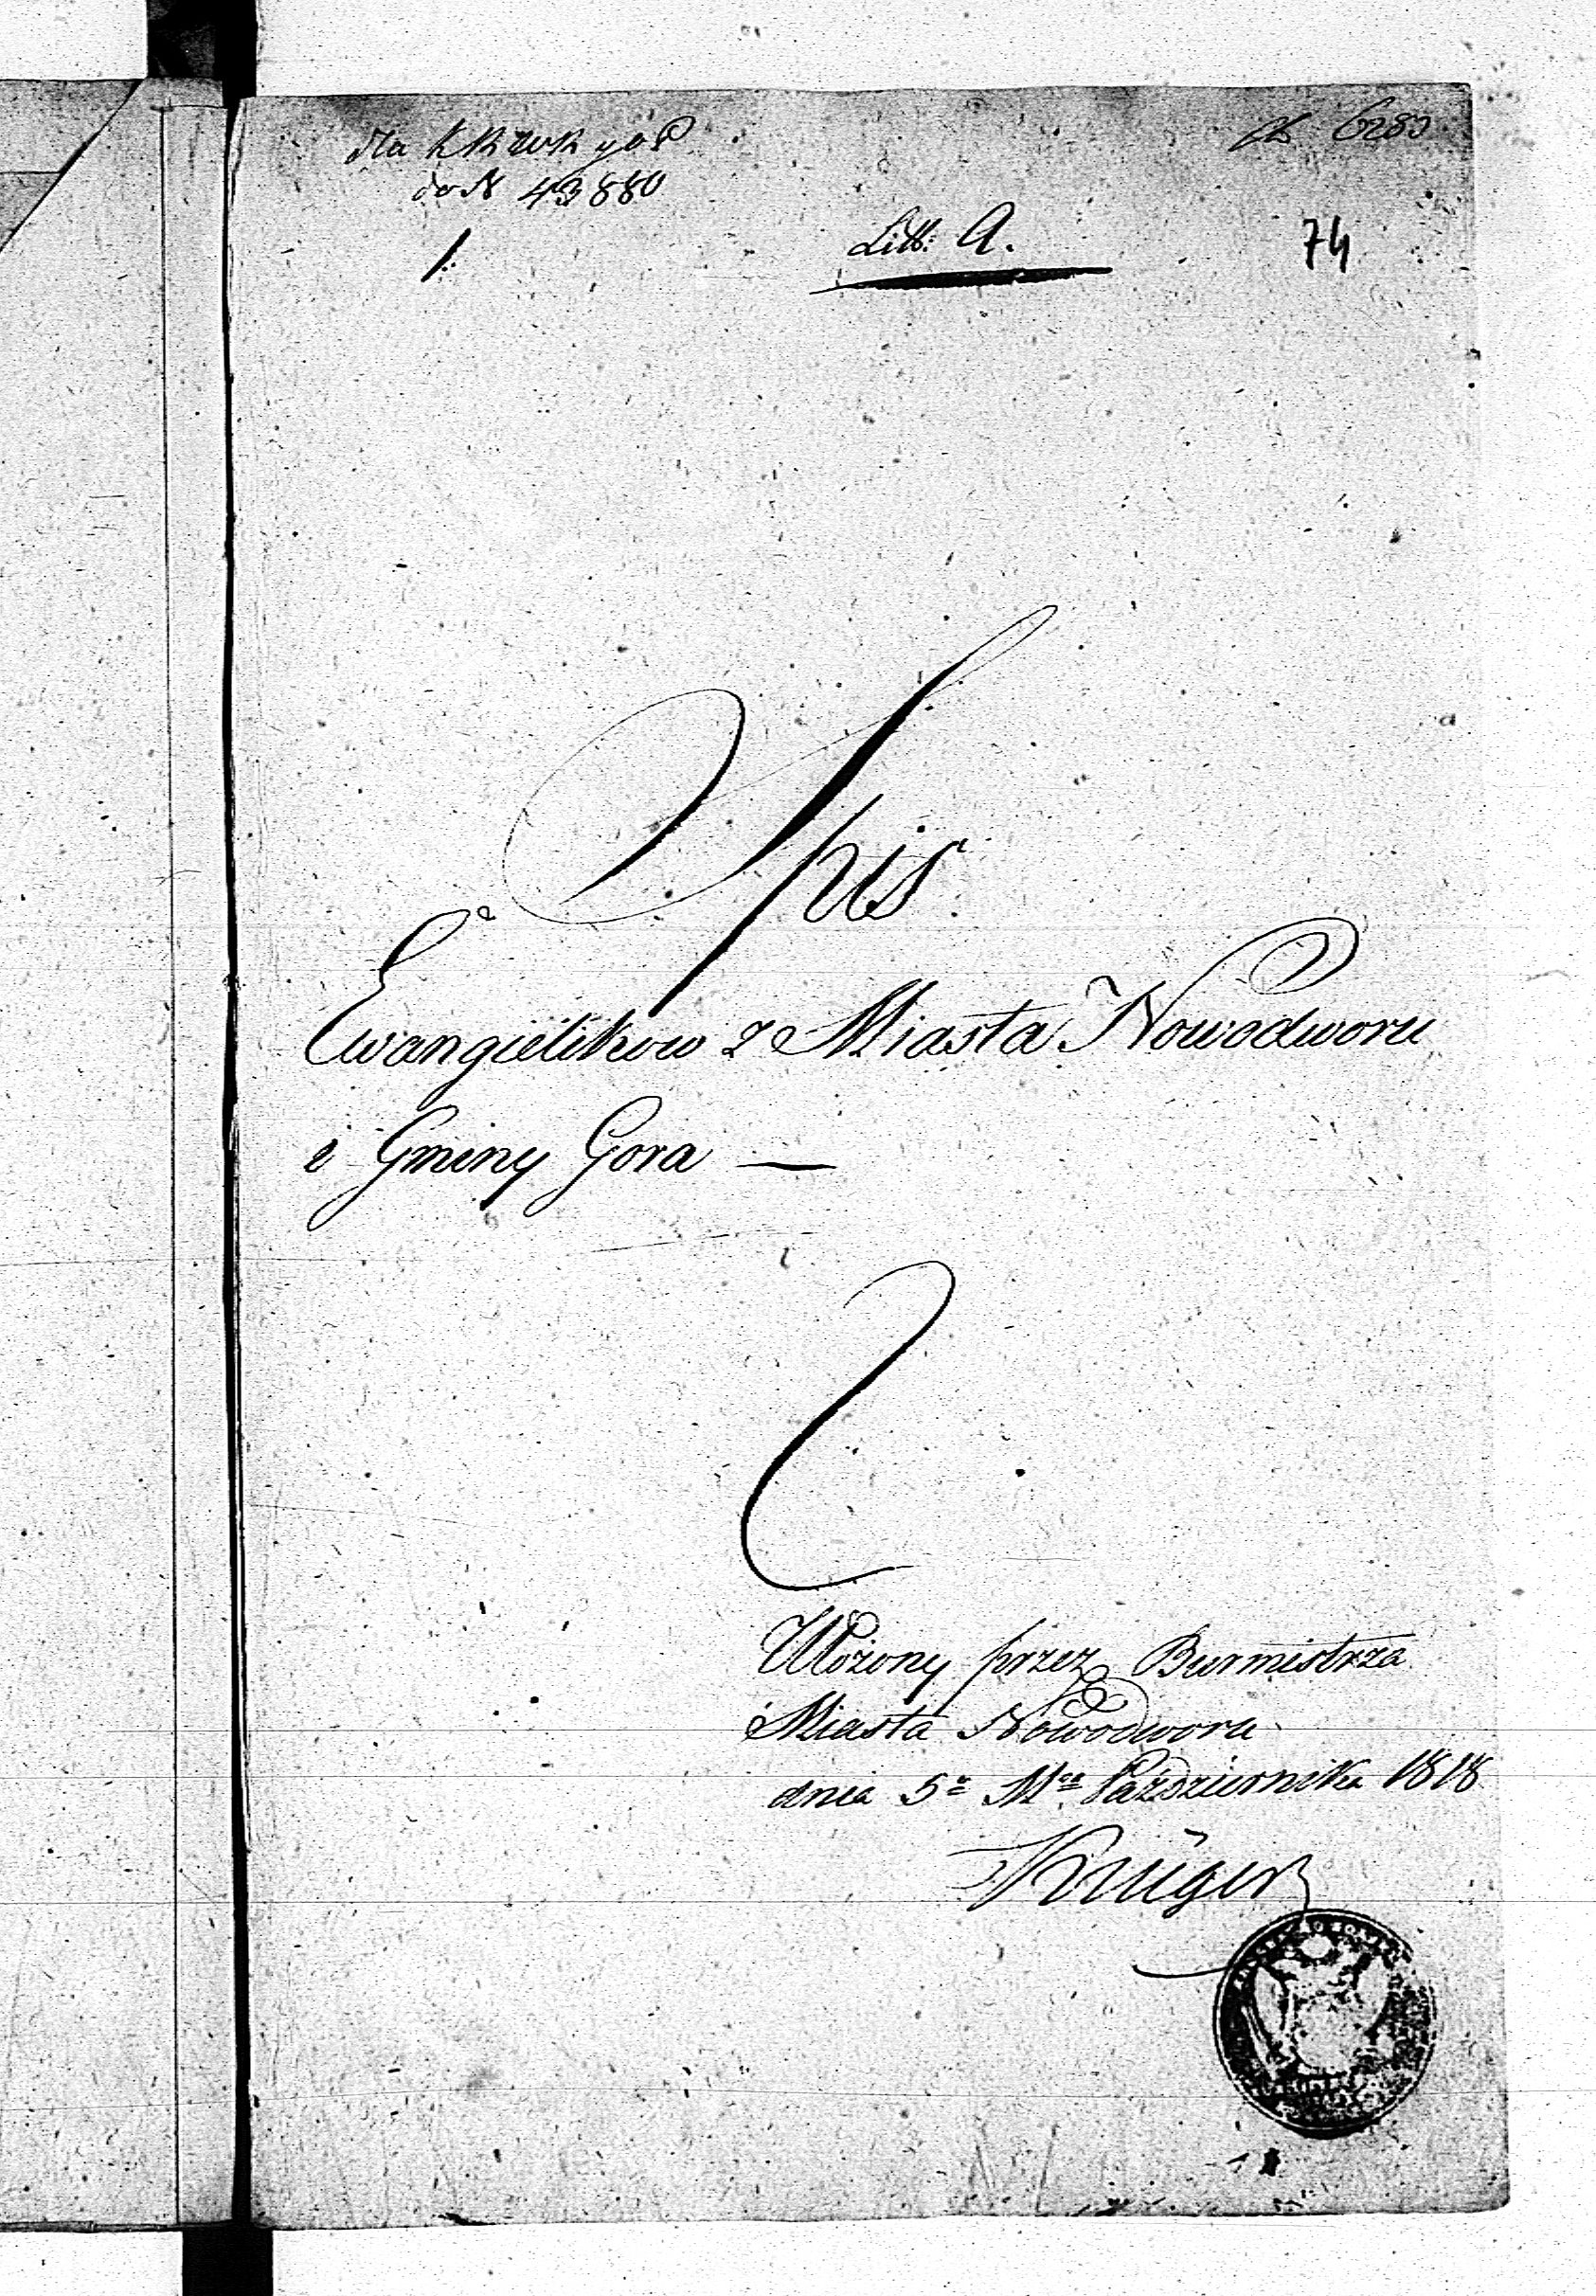 dla
do N 43880
6283
1.
Litt: A.
74
Spis
Ewangielikow z Miasta Nowodworu
i Gminy Gora —
Ułożony przez Burmistrza
Miasta Nowodworu
dnia 5º Mca Października 1818
Krüger